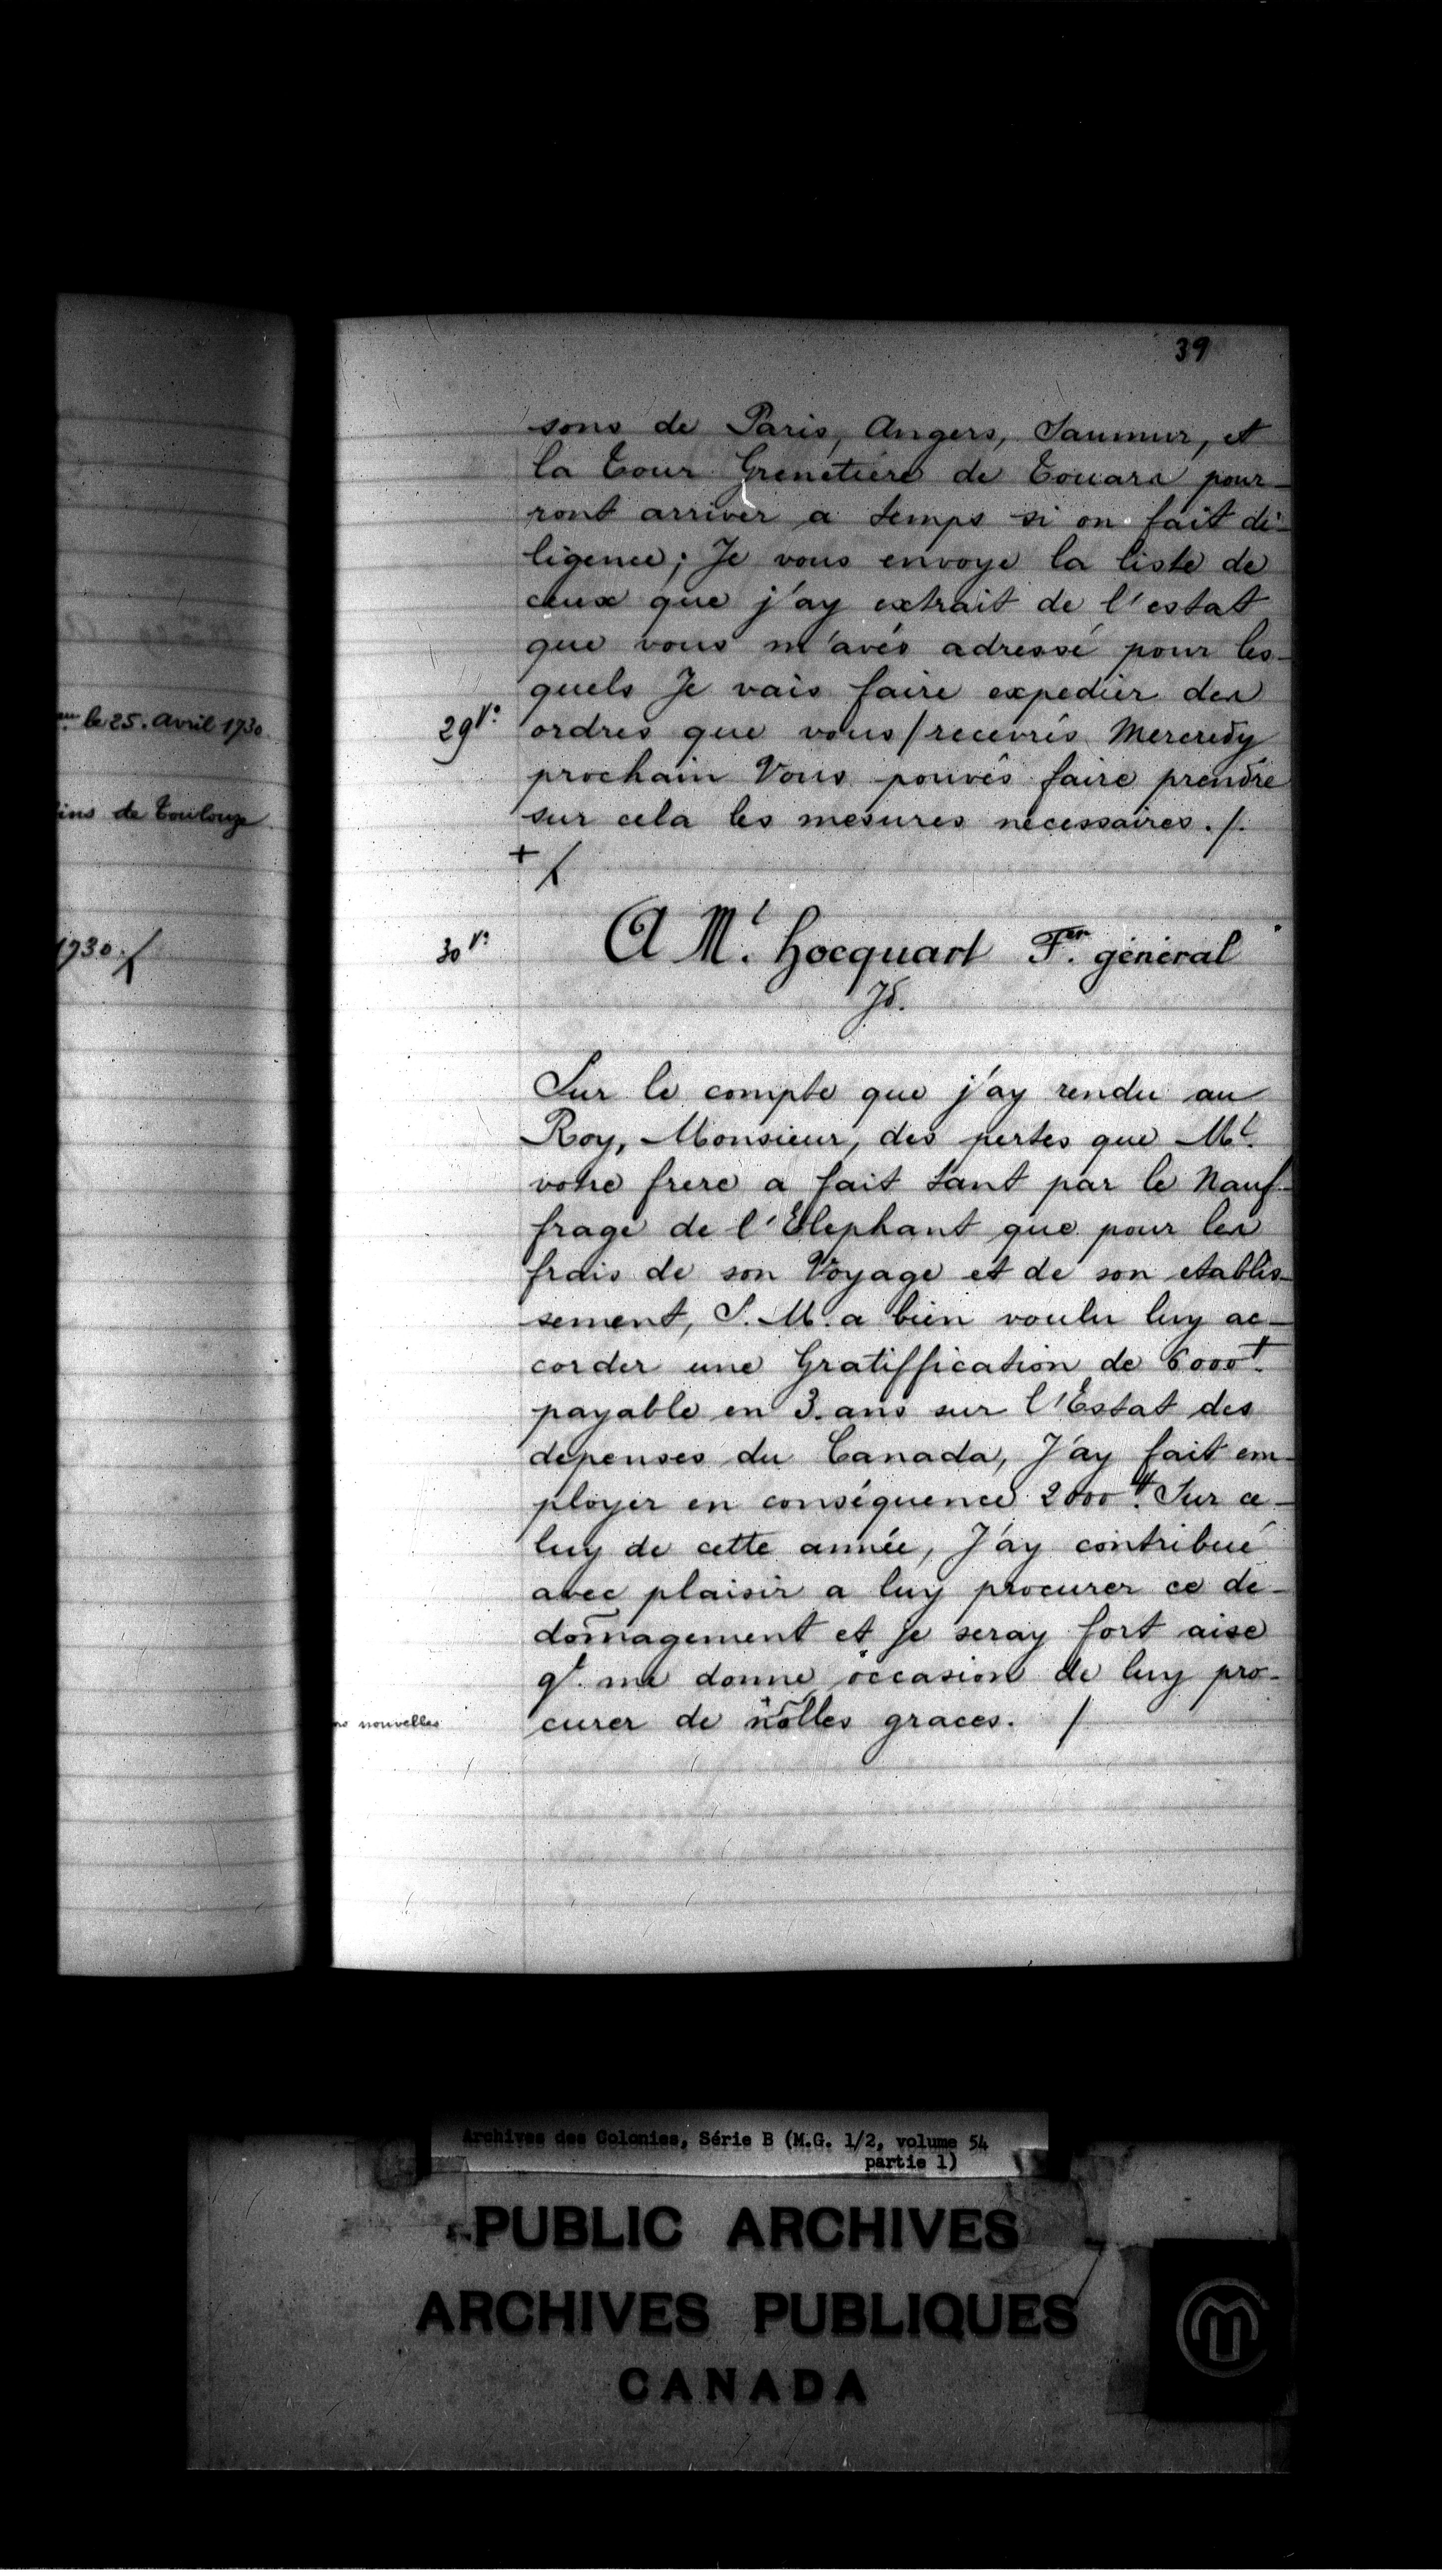 39
sons de Paris, Angers, Saumur, et
la Tour Grenetiere de Touars pour-
ront arriver a temps si on fait di-
ligence; Je vous envoye la liste de
ceux que j'ay extrait de l'estat
que vous m'avés adressé pour les-
quels Je vais faire expedier des
29 v.° ordres que vous/recevrés Mercredy
prochain Vous pouvés faire prendre
sur cela les mesures necessaires ./.
+ /
30 v.° A M.r hocquart F.er général
Id.
Sur le compte que j'ay rendu au
Roy, Monsieur, des pertes que M.r
votre frere a fait tant par le Nauf-
frage de l'Elephant que pour les
frais de son Voyage et de son etablis-
sement, S. M. a bien voulu luy ac-
corder une Gratiffication de 6000tt.
payable en 3. ans sur l'Estat des
depenses du Canada, J'ay fait em-
ployer en conséquence 2000tt. Sur ce-
luy de cette année, J'ay contribué
avec plaisir a luy procurer ce de-
dom̃agement et je seray fort aise
q.l me donne occasion de luy pro-
curer de ñolles graces. /
nouvelles
le 25. avril 1730
ins de Toulouze
1730. /
Archives des Colonies, Série B (M.G. 1/2, volume 54
partie 1)
PUBLIC ARCHIVES
ARCHIVES PUBLIQUES
CANADA